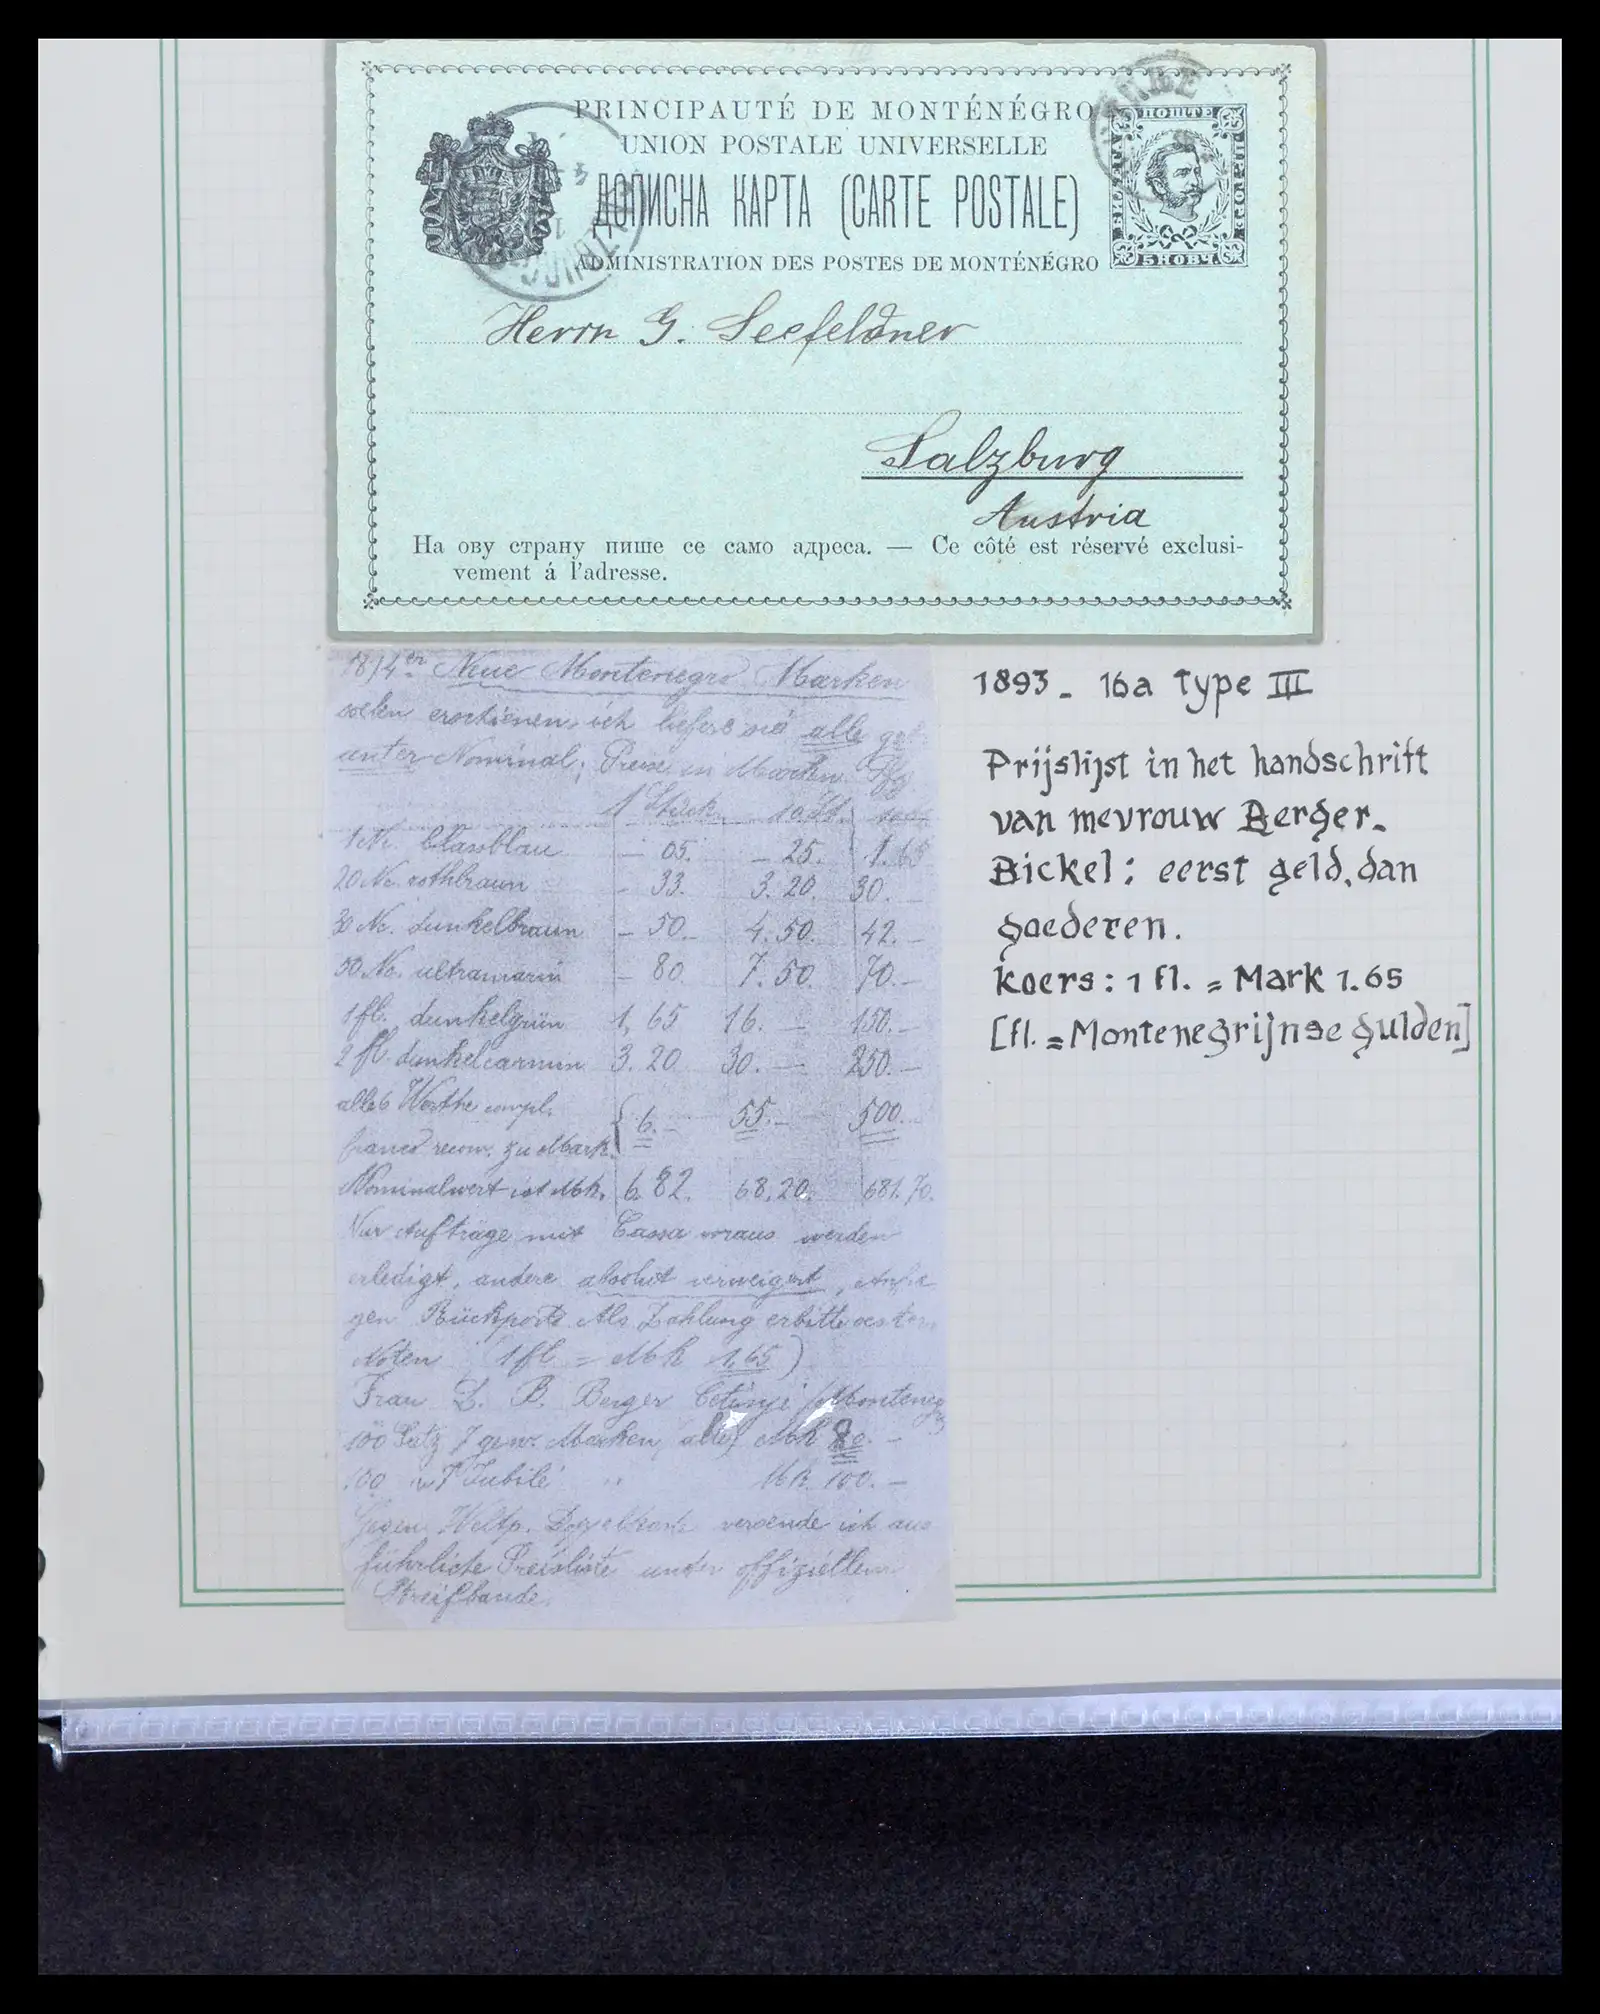 PRINCIPAUTÉ DE MONTÉNÉGRO
UNION POSTALE UNIVERSELLE
ДОПИСНА КАРТА (CARTE POSTALE)
ADMINISTRATION DES POSTES DE MONTÉNÉGRO
ПОШТЕ
5 НОВЧ.
Herrn G. Seefeldner
Salzburg
Austria
На ову страну пише се само адреса. — Ce côté est réservé exclusi-
vement á l'adresse.
Neue Montenegro Marken
soeben erschienen, ich liefere sie alle
unter Nominal; Preise in Marken Pfg
1 Stück 10 St.
1 Nc. blassblau – 05. – 25. 1.65
20 Nc. rothbraun – 33. 3.20. 30.–
30 Nc. dunkelbraun – 50.– 4.50. 42.–
50 Nc. ultramarin – 80. 7.50. 70.–
1 fl. dunkelgrün 1,65 16.— 150.–
2 fl. dunkelcarmin 3.20 30.— 250.–
alle 6 Werthe compl.
franco recom. zu Mark 6.– 55.– 500.–
Nominalwert ist Mk. 6.82. 68,20. 681.70.
Nur Aufträge mit Cassa voraus werden
erledigt, andere absolut verweigert,
gen Rückporto. Als Zahlung erbitte
Noten (1 fl = Mk 1,65)
Frau L. B. Berger Cetinje Montenegro
100 Satz 7 gew. Marken, Mk 80.–
100 Jubilé " Mk. 100.–
Gegen Weltp. Doppelkarte versende ich aus
führliche Preisliste unter offiziellem
Streifbande.
1893 – 16a type III
Prijslijst in het handschrift
van mevrouw Berger-
Bickel: eerst geld, dan
goederen.
koers: 1 fl. = Mark 1.65
[fl. = Montenegrijnse gulden]